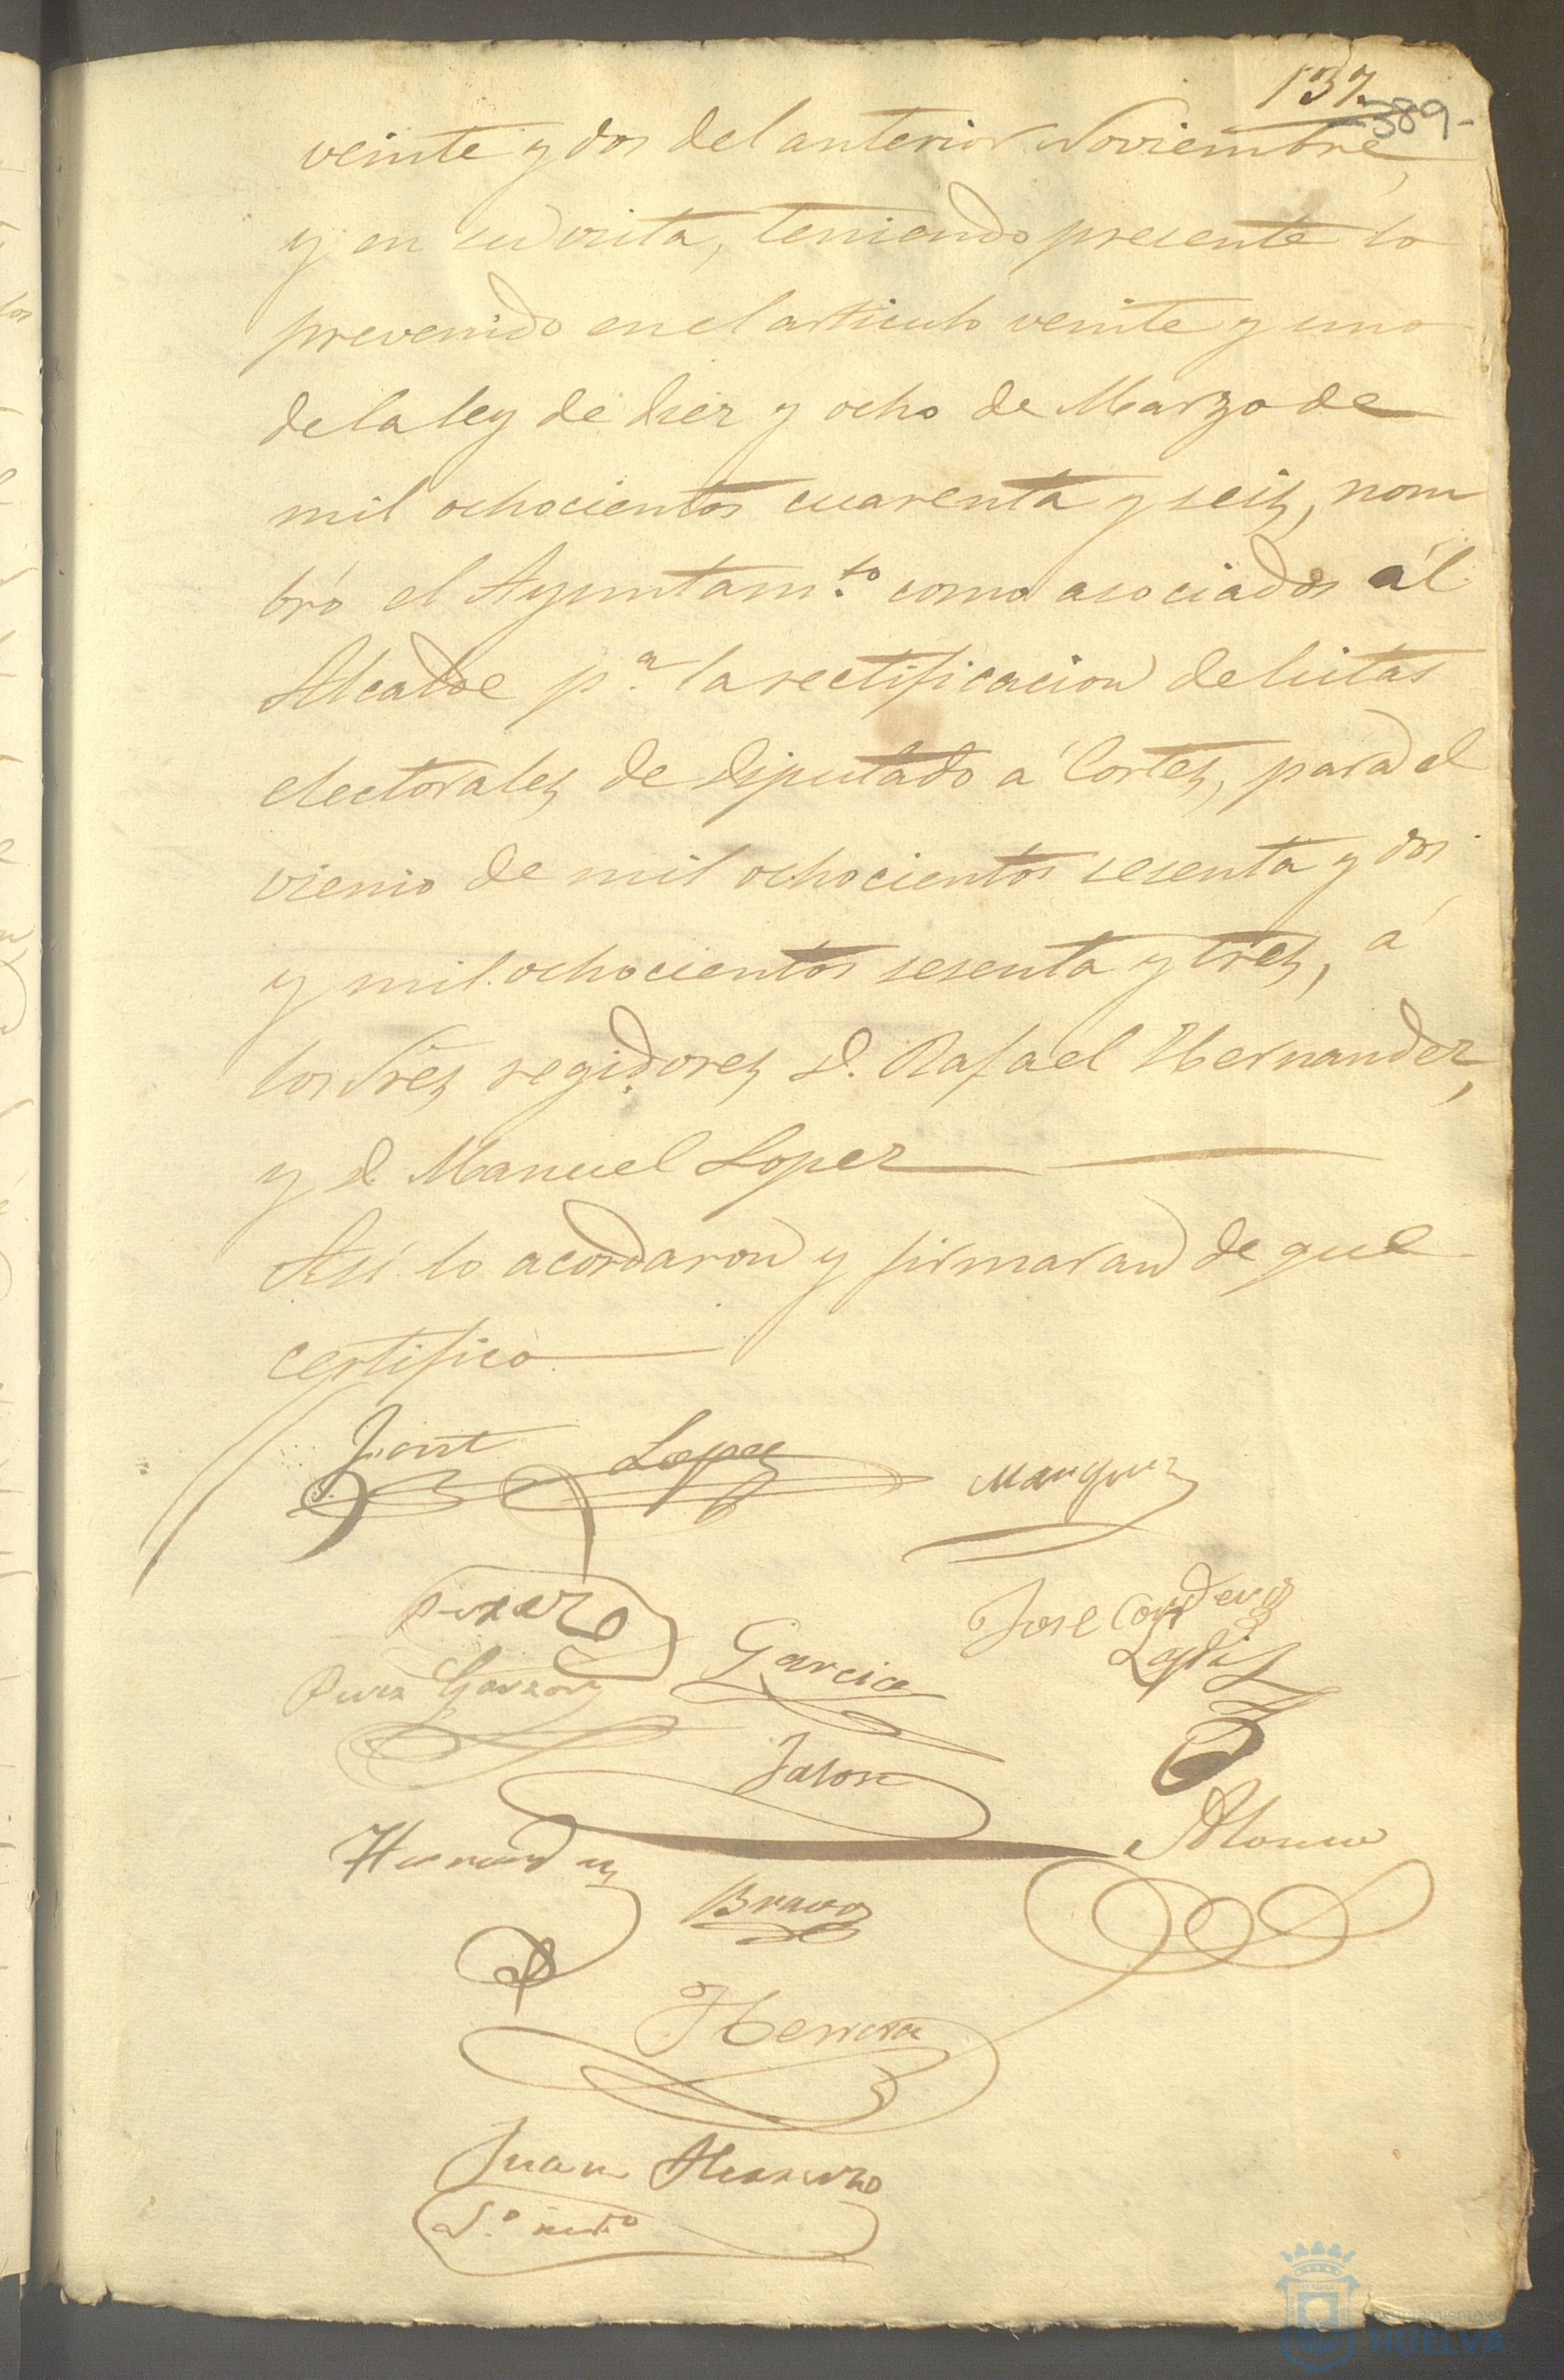 137.
-389-
veinte y dos del anterior Noviembre,
y en su vista, teniendo presente lo
prevenido en el articulo veinte y uno
de la ley de diez y ocho de Marzo de
mil ochocientos cuarenta y seis, nom
bró el Ayuntam.to como asociados ál
Alcalde p.a la rectificacion de listas
electorales de diputado á Cortes, para el
vienio de mil ochocientos sesenta y dos
y mil ochocientos sesenta y tres, á
los Sres regidores D. Rafael Hernandez,
y D. Manuel Lopez
Así lo acordaron y firmaran de que
certifico
Lopez
Marquez
Perez
Jose Cordero
Garcia
Garzon
Jalon
Alonso
Hernandez
Bravo
Herrera
Juan
S.o
Ayuntamiento de
HUELVA